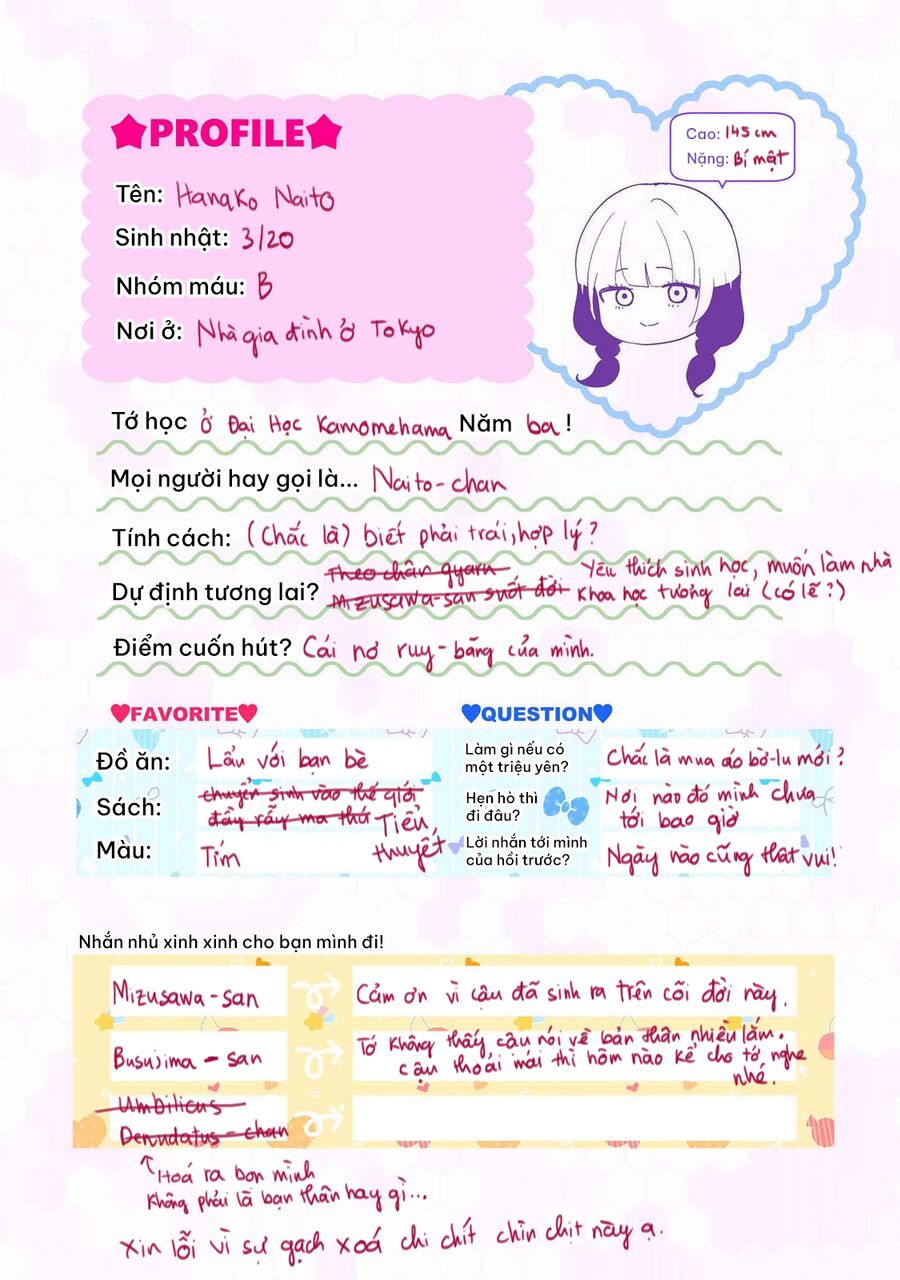 ★PROFILE★
Cao: 145 cm
Nặng: Bí mật
Tên: Hanako Naito
Sinh nhật: 3/20
Nhóm máu: B
Nơi ở: Nhà gia đình ở Tokyo
Tớ học ở Đại Học Kamomehama Năm ba!
Mọi người hay gọi là... Naito-chan
Tính cách: (Chắc là) biết phải trái, hợp lý?
Dự định tương lai? Theo chân gyaru Mizusawa-san suốt đời
Yêu thích sinh học, muốn làm nhà
khoa học tương lai (có lẽ?)
Điểm cuốn hút? Cái nơ ruy-băng của mình.
♥FAVORITE♥
Đồ ăn: Lẩu với bạn bè
Sách: chuyển sinh vào thế giới
đầy rẫy ma thú Tiểu
thuyết
Màu: Tím
♥QUESTION♥
Làm gì nếu có
một triệu yên?
Chắc là mua áo bờ-lu mới?
Hẹn hò thì
đi đâu?
Nơi nào đó mình chưa
tới bao giờ
Lời nhắn tới mình
của hồi trước?
Ngày nào cũng thật vui!
Nhắn nhủ xinh xinh cho bạn mình đi!
Mizusawa-san
Cảm ơn vì cậu đã sinh ra trên cõi đời này.
Busujima-san
Tớ không thấy cậu nói về bản thân nhiều lắm.
Cậu thoải mái thì hôm nào kể cho tớ nghe
nhé.
Umbilicus
Denudatus-chan
Hoá ra bọn mình
không phải là bạn thân hay gì...
Xin lỗi vì sự gạch xoá chi chít chìn chịt này ạ.